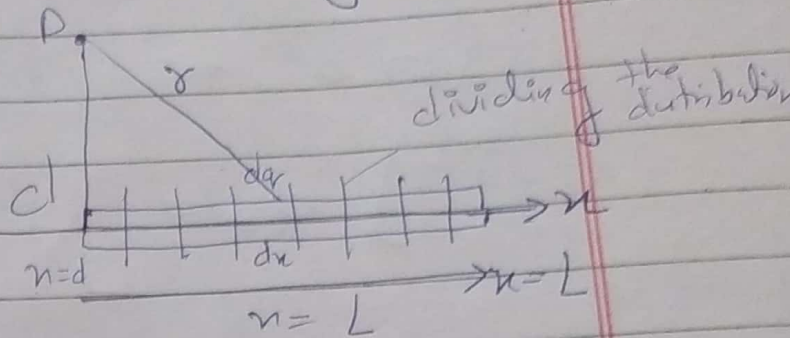 P
r
dividing the
distribution
dq
d
x
x=d
dx
x=L
x= L